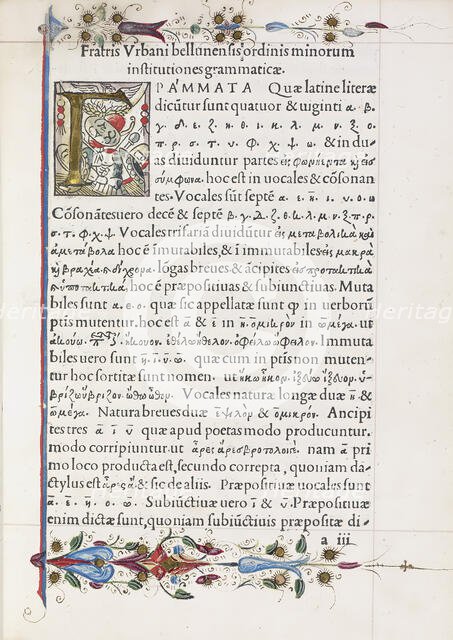 Fratris Vrbani bellunensis ordinis minorum
institutiones grammaticæ.
ΓPAMMATA Quæ latine literæ
dicũtur sunt quatuor & uiginti α. β.
γ. δ. ε. ζ. η. θ. ι. κ. λ. μ. ν. ξ. ο
π. ρ. σ. τ. υ. φ. χ. ψ. ω. & in du-
as diuiduntur partes εἰς φωνήεντα κỳ εἰς
σύμφωνα. hoc est in uocales & cõsonan
tes. Vocales sũt septẽ α. ε. η. ι. ο. υ. ω
Cõsonãtes uero decẽ & septẽ β. γ. δ. ζ. θ. κ. λ. μ. ν. ξ. π. ρ.
σ. τ. φ. χ. ψ. Vocales trifariã diuidũtur εἰς μεταβολικὰ κỳ
ἀμετάβολα hoc ẽ ĩmutabiles, & ĩ immutabiles εἰς μακρὰ
κỳ βραχέα κỳ δίχρονα. lõgas breues & ãcipites εἰς προτακτικὰ
κỳ ὑποτακτικά, hoc ẽ præpositiuas & subiunctiuas. Muta
biles sunt α. ε. ο. quæ sic appellatæ sunt ꝙ in uerborũ
ptiis mutentur. hoc est ᾱ & ε̄ in η̄. ὀμικρὸν in ω̄μέγα. ut
ἀκούω. ἤκουον. ἐθέλω ἤθελον. ὀφείλω ὤφειλον. Immuta
biles uero sunt η̄. ι̅. ῡ. ω̅. quæ cum in ptiis non muten-
tur hoc sortitæ sunt nomen. ut
Vocales natura longæ duæ η̄ &
ω̄μέγα. Natura breues duæ ἐψιλὸν & ὀμικρόν. Ancipi
tes tres ᾱ ι̅ ῡ quæ apud poetas modo producuntur.
modo corripiuntur ut ἆρες ἄρες βροτολοιγέ. nam ᾱ pri
mo loco producta est, secundo correpta, quoniam da-
ctylus est ἆρες ᾱ & sic de aliis. Præpositiuæ uocales sunt
ᾱ. ε̄. η̄. ο. ω. Subiũctiuæ uero ι̅ & ῡ. Præpositiuæ
enim dictæ sunt, quoniam subiũctiuis præpositæ di-
a iii